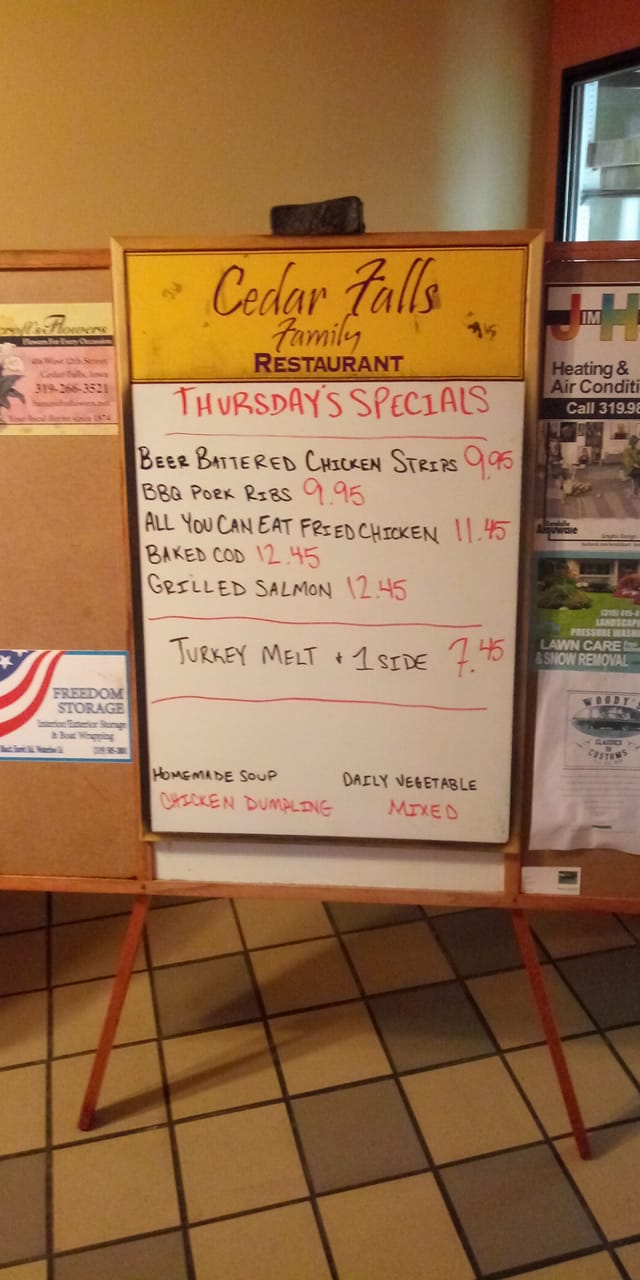 Cedar Falls
Family
RESTAURANT
THURSDAY'S SPECIALS
BEER BATTERED CHICKEN STRIPS 9.95
BBQ PORK RIBS 9.95
ALL YOU CAN EAT FRIED CHICKEN 11.45
BAKED COD 12.45
GRILLED SALMON 12.45
TURKEY MELT + 1 SIDE 7.45
HOMEMADE SOUP DAILY VEGETABLE
CHICKEN DUMPLING MIXED
Flowers
Flowers For Every Occasion
West 12th Street
Cedar Falls, Iowa
319-266-3521
Your local florist since 1874
FREEDOM
STORAGE
Interior/Exterior Storage
& Boat Wrapping
JIM H
Heating &
Air Conditi
Call 319.98
LANDSCAP
PRESSURE WAS
LAWN CARE
& SNOW REMOVAL
WOODY'S
CLASSICS
TO
CUSTOMS